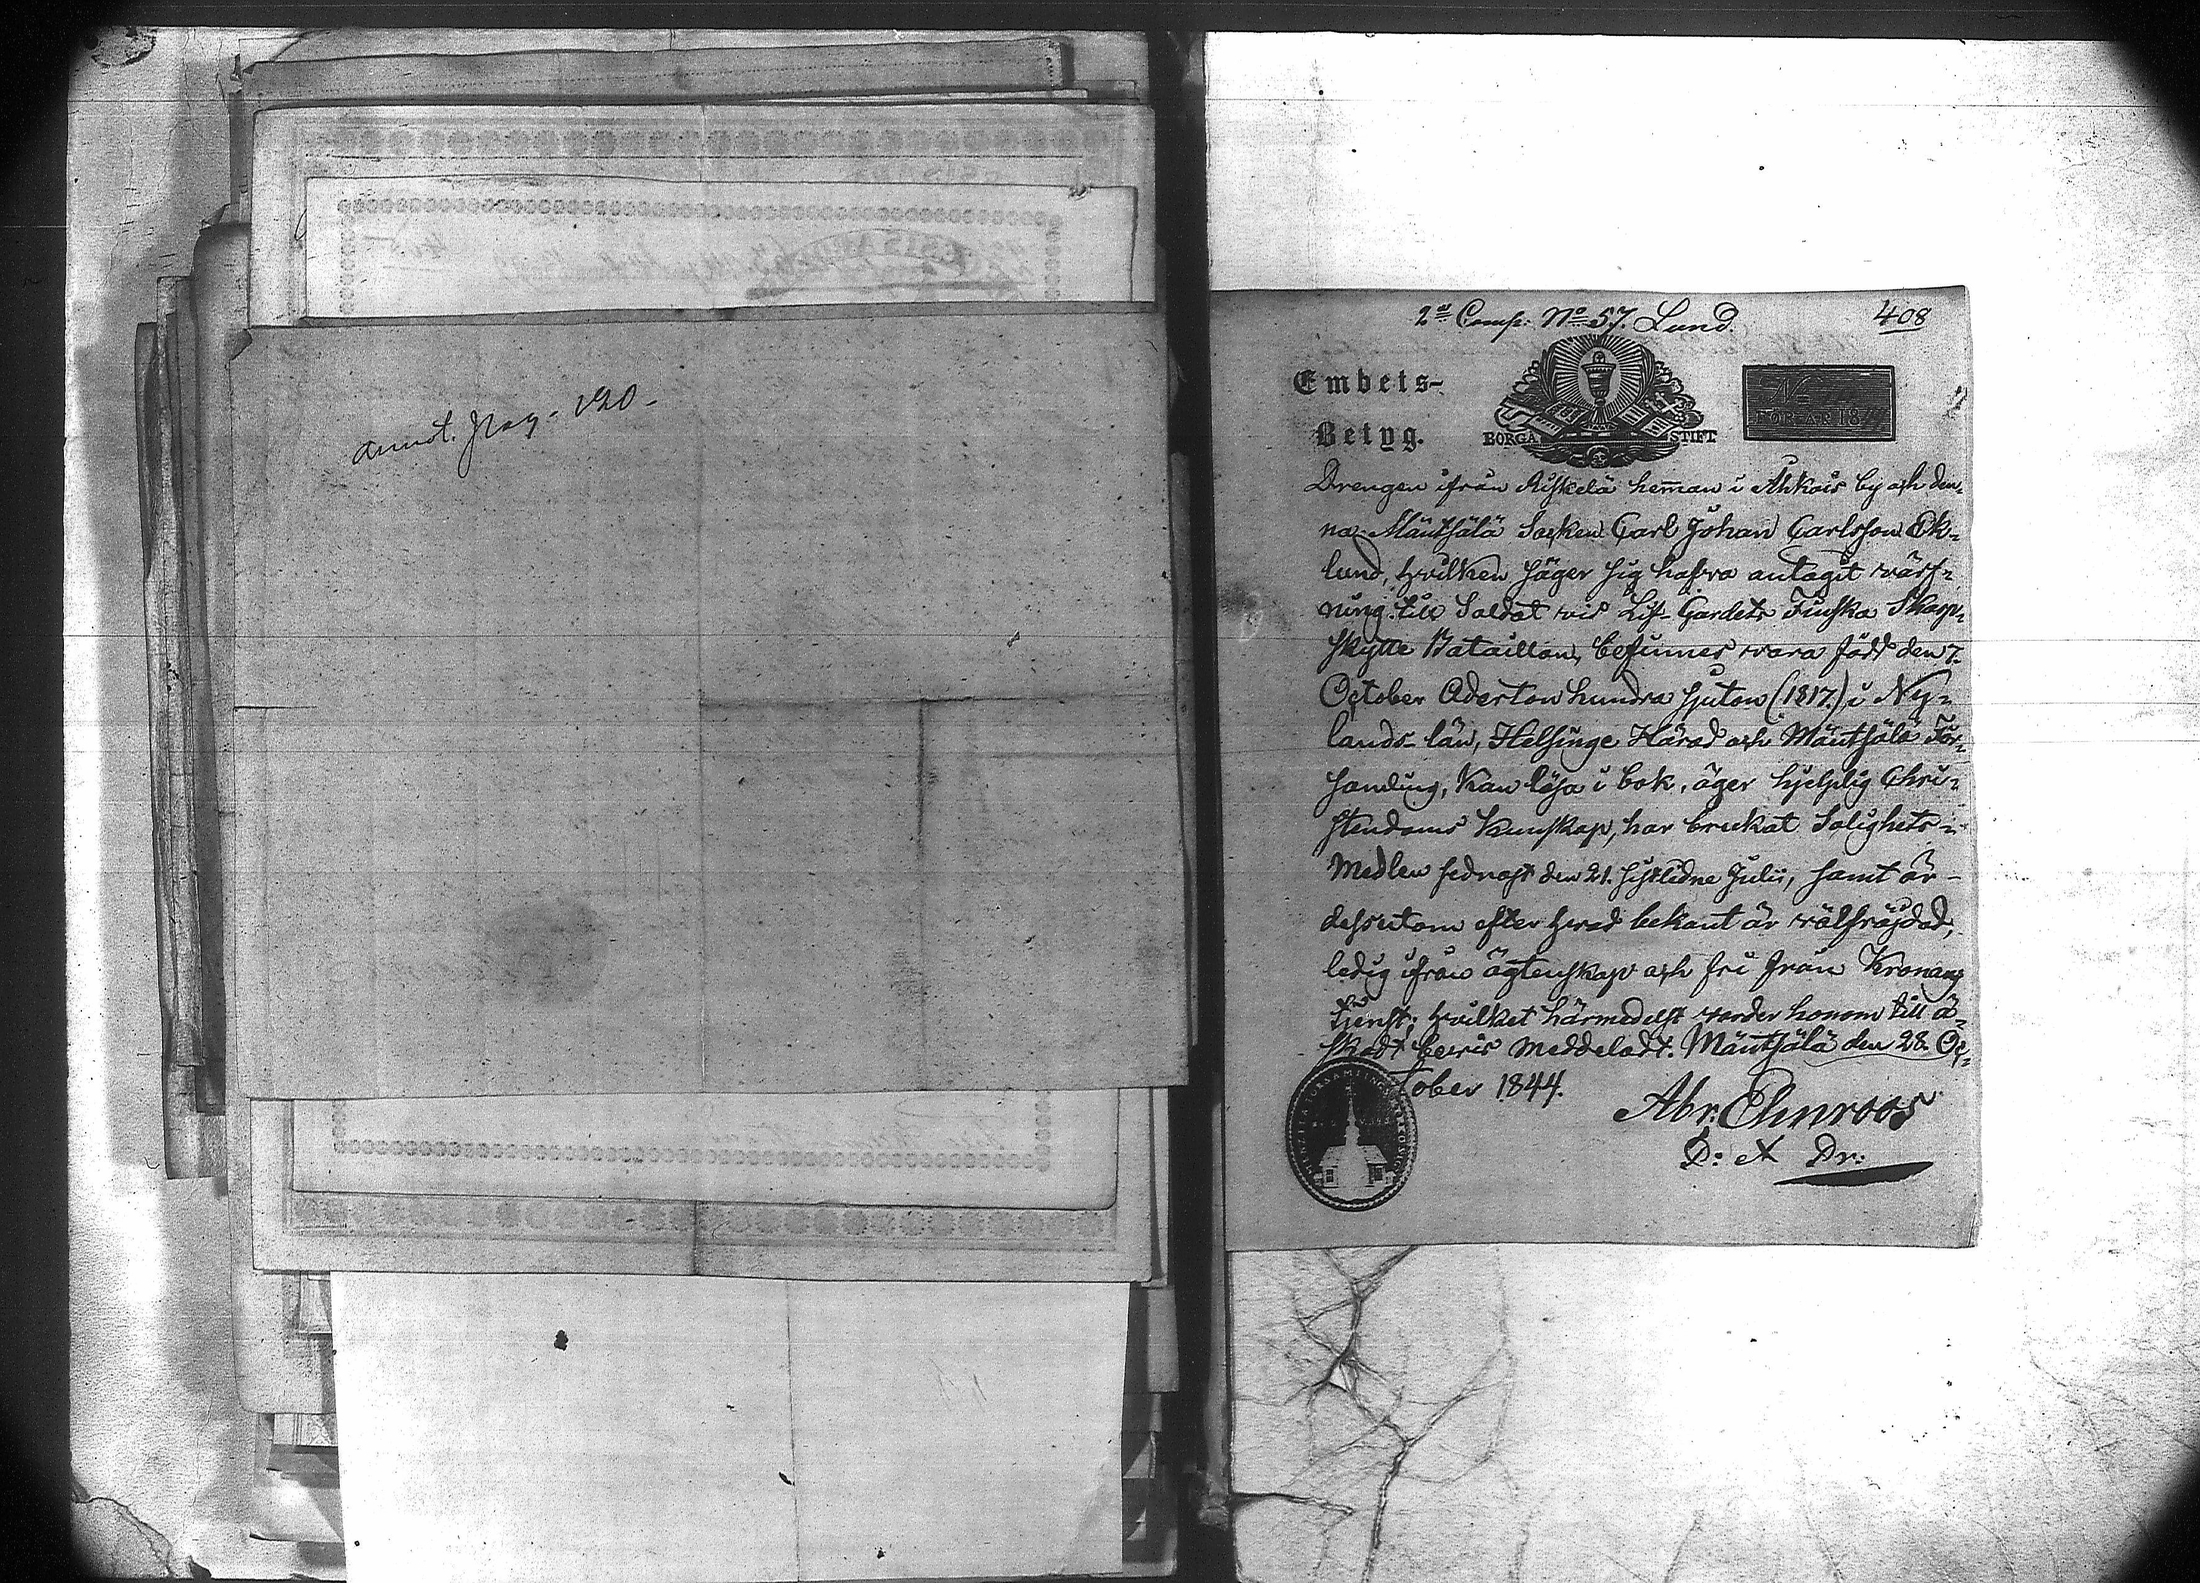 annot. pag. 120.
2:a Comp: No 57. Lund.
408
Embets-
Betyg.
BORGÅ STIFT
No
FÖR ÅR 18
Drengen ifrån hemman i by och den-
na Mäntsälä Socken Carl Johan Carlsson Ek-
lund, hvilken säger sig hafva antagit värf-
ning till Soldat vid Lif-Gardets Finska Skarp-
skytte Bataillon, befinnes vara född den 7.
October Adertonhundra sjuton (1817.) i Ny-
lands län, Helsinge Härad och Mäntsälä För-
samling, kan läsa i bok, äger hjelplig Chri-
stendoms kunskap, har brukat Salighets-
Medlen sednast den 21. sistledne Julii, samt är
dessutom efter hvad bekant är välfräjdad,
ledig ifrån ägtenskap och fri från Kronans
tjenst; hvilket härmedelst varder honom till ä-
skadt bevis meddeladt. Mäntsälä den 28. Oc-
tober 1844.
Abr. Ehnroos